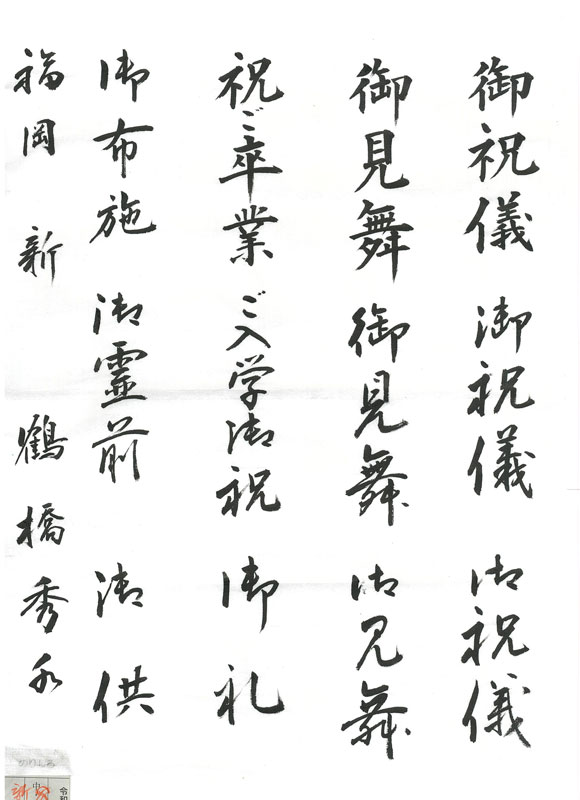 御祝儀 御祝儀 御祝儀
御見舞 御見舞 御見舞
祝ご卒業 ご入学御祝 御礼
御布施 御霊前 御供
福岡 新 鶴橋秀水
中
令和